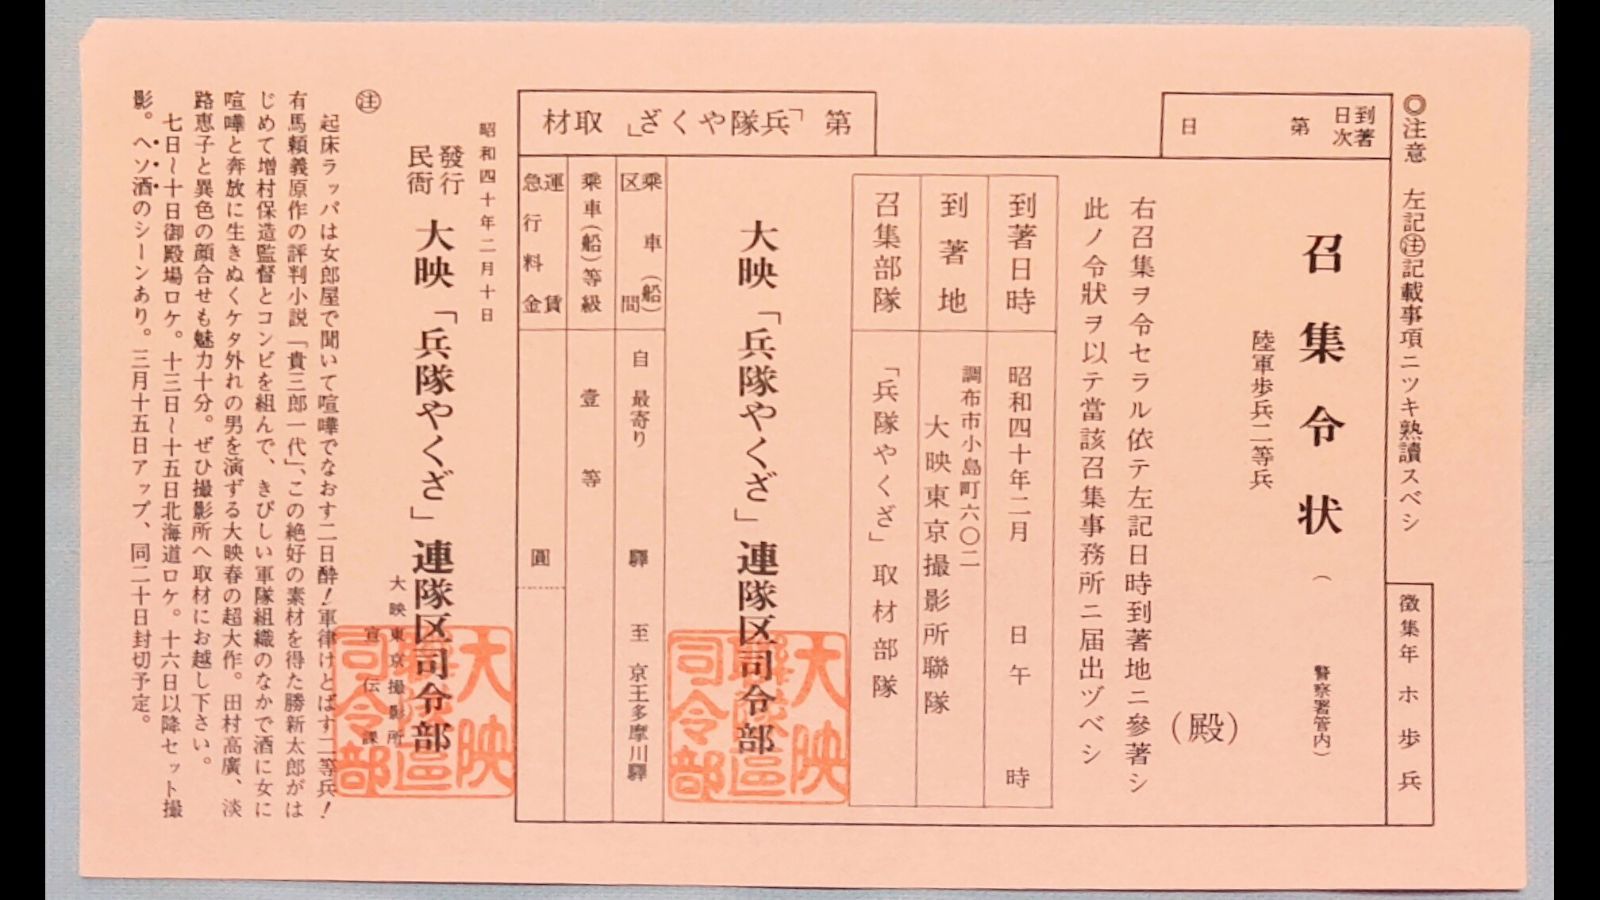 ◎注意 左記㊟記載事項ニツキ熟讀スベシ
徴集年 ホ 歩 兵
到著日次
第 日
召集令状
(警察署管内)
陸軍歩兵二等兵
(殿)
右召集ヲ令セラル依テ左記日時到著地ニ參著シ
此ノ令狀ヲ以テ當該召集事務所ニ届出ヅベシ
到著日時
昭和四十年二月 日 午 時
到著地
調布市小島町六〇二
大映東京撮影所聯隊
召集部隊
「兵隊やくざ」取材部隊
第「兵隊やくざ」取材
大映「兵隊やくざ」連隊区司令部
大映聯隊區司令部
乘車(船)區間
自 最寄り 驛 至 京王多摩川驛
乘車(船)等級
壹 等
運賃
急行料金
圓
昭和四十年二月十日
發行民衙
大映「兵隊やくざ」連隊区司令部
大映東京撮影所
宣伝課
大映聯隊區司令部
㊟
起床ラッパは女郎屋で聞いて喧嘩でなおす二日酔!軍律けとばす二等兵!
有馬頼義原作の評判小説「貴三郎一代」、この絶好の素材を得た勝新太郎がは
じめて増村保造監督とコンビを組んで、きびしい軍隊組織のなかで酒に女に
喧嘩と奔放に生きぬくケタ外れの男を演ずる大映春の超大作。田村高廣、淡
路恵子と異色の顔合せも魅力十分。ぜひ撮影所へ取材にお越し下さい。
七日〜十日御殿場ロケ。十三日〜十五日北海道ロケ。十六日以降セット撮
影。ヘソ酒のシーンあり。三月十五日アップ、同二十日封切予定。